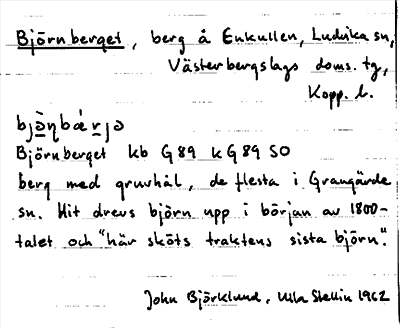 Björnberget, berg å Enkullen, Ludvika sn,
Västerbergslags doms. tg,
Kopp. l.
bjə̀ηbǽrjə
Björnberget kb G89 k G89 SO
berg med gruvhål, de flesta i Grangärde
sn. Hit drevs björn upp i början av 1800-
talet och "här sköts traktens sista björn".
John Björklund, Ulla Stellin 1962